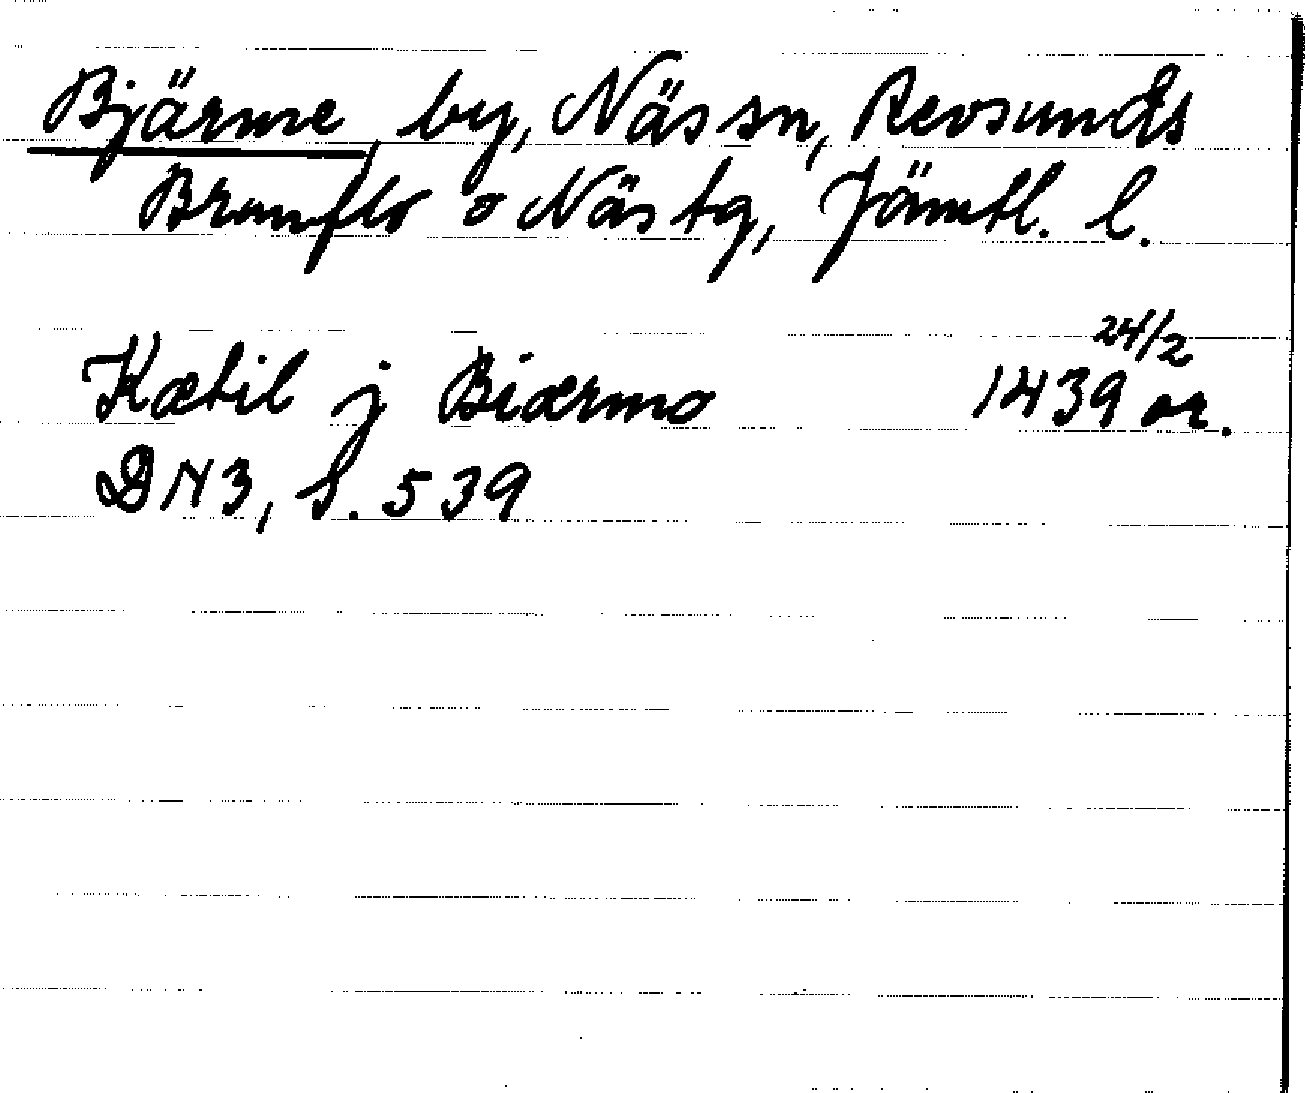 Bjärme by, Näs sn, Revsunds
Brunflo o Näs tg, Jämtl. l.
24/2
Kætil j Biærmo 1439 or.
DN 3, s. 539